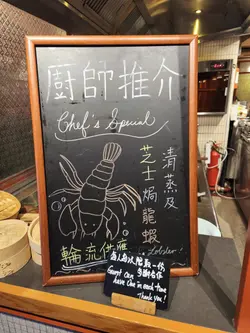 廚師推介
Chef's Special
清蒸及
芝士焗龍蝦
Lobster
輪流供應
多謝合作
Guest can
have One in each time
Thank you!